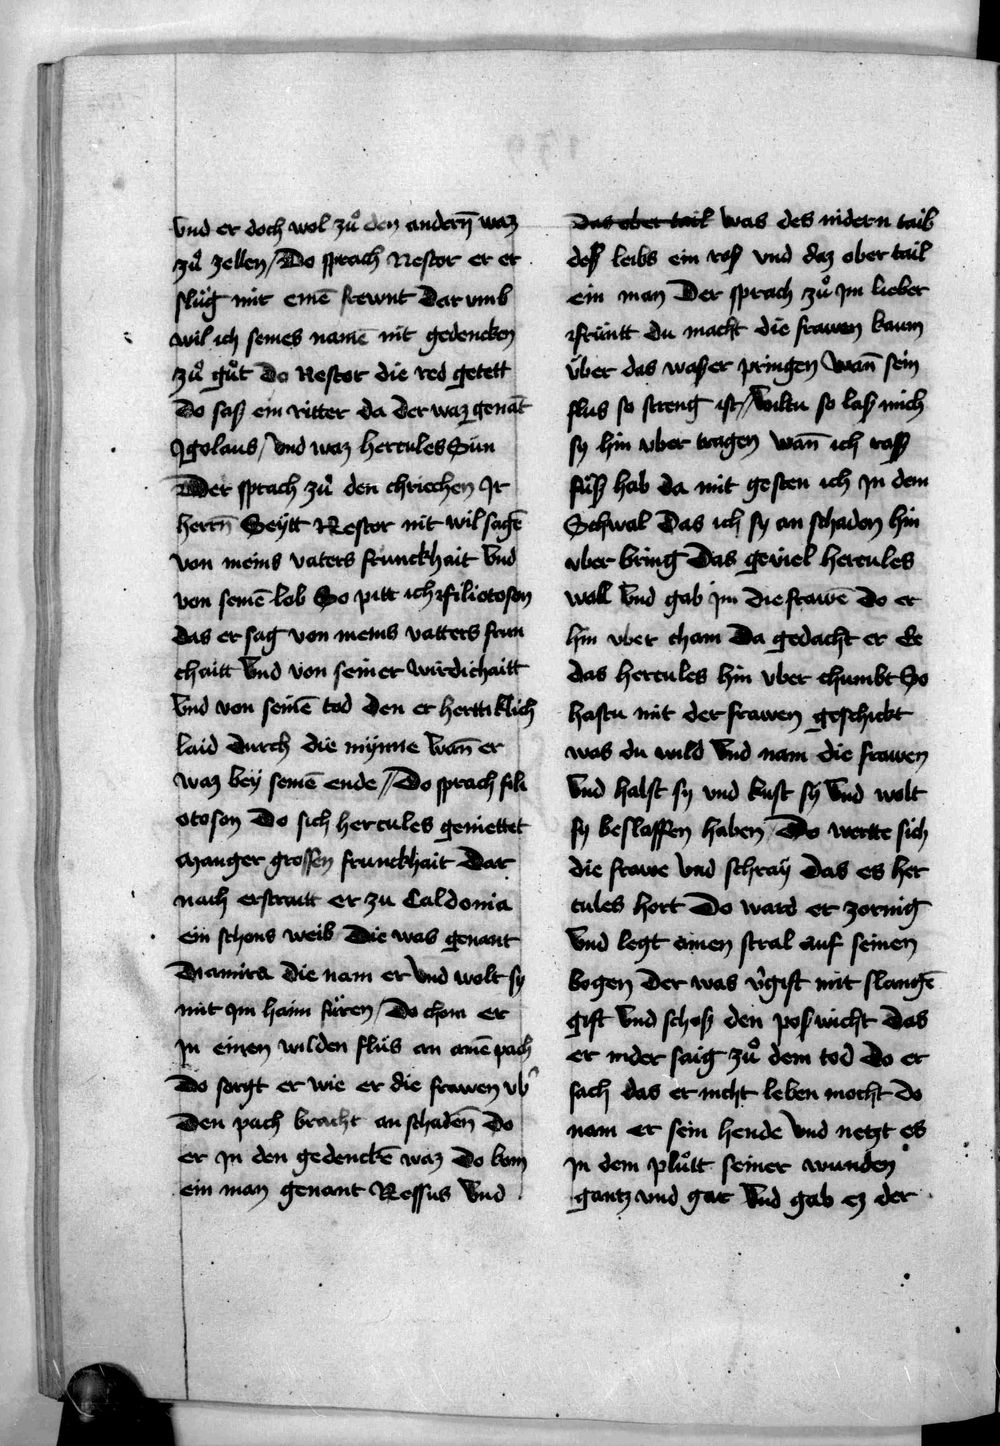 vnd er doch wol zů den andern̄ waz
zů zellen / Do sprach Nestor er er
slůg mir einē frewnt Dar vmb
wil ich seines namē nit gedencken
zů gůt Do Nestor die red getett
Do saſ ein ritter da Der waz genāt
Jgolaus / vnd waz hercules Sun
Der sprach zů den chriechen Jr
herrn̄ Seytt Nestor nit wil sagē
von meins vaters frunckhait Vnd
von seinē lob So pitt ich filiotoson
das er sag von meins vatters frun
chaitt Vnd von seiner wirdichaitt
Vnd von seinē tod Den er herttiklich
laid Durch die mynne Wan̄ er
waz bey seinē ende // Do sprach fili
otoson Do sich hercules geniettet
manger grossen frunckhait Dar
nach erstraitt er zu Caldonia
ein schons weib Die was genant
Dianira die nam er Vnd wolt sy
mit Jm haim füren / Do chom er
Jn einen wilden flůs an ainē pach
Do sorgt er wie er die frawen vb̄
Den pach bracht an schadēn Do
er Jn den gedenckē waz Do kom
ein man genant Nessus Vnd
Das ober tail was des nidern tails
deſ leibs ein roſ vnd daz ober tail
ein man Der sprach zů Jm lieber
frůntt du macht die frawen kaum
über das waſer pringen Wan̄ sein
flus so streng ist / Wiltu so laſ mich
sy hin vber tragen wan̄ ich roſſ
fůſ hab da mit gesten ich Jn dem
Schwal Das ich sy an schaden hin
vber bring Das geviel hercules
woll Vnd gab Jm die frawē Do er
hin vber cham Da gedacht er Ee
das hercules hin vber chumbt So
hastu mit der frawen geschickt
was du wild Vnd nam die frawen
Vnd halst sy vnd kust sy Vnd wolt
sy beslaffen haben / Do wertte sich
die frawe Vnd schray Das es her
cules hort Do ward er zornig
Vnd legt ainen stral auf seinen
bogen Der was v̂gift mit slangē
gift Vnd schoſ den poſwicht Das
er nider saig zů dem tod Do er
sach das er nicht leben mocht Do
nam er sein hende Vnd netzt es
Jn dem plůtt seiner wunden
gantz vnd gar Vnd gab ez der